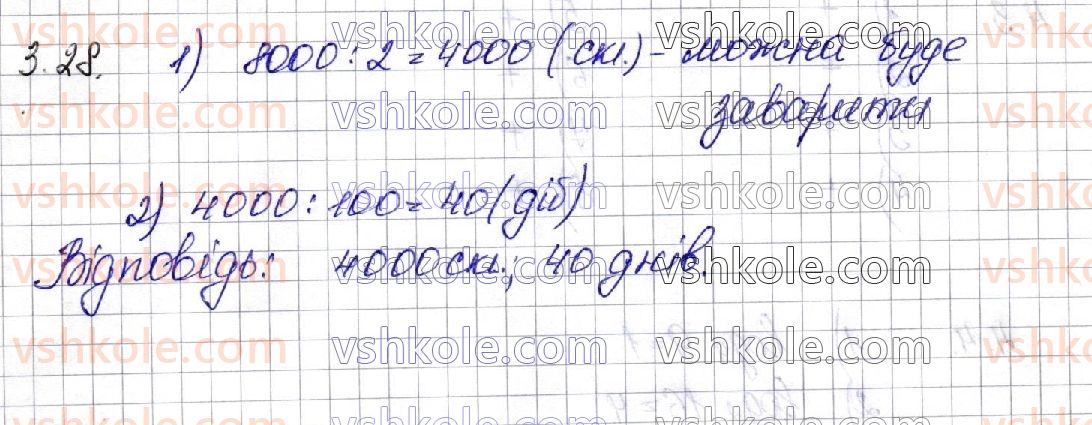 3.28. 1) 8000 : 2 = 4000 (скл.) - можна буде
заварити
2) 4000 : 100 = 40 (діб)
Відповідь: 4000 ск.; 40 днів.
vshkole.com vshkole.com vshkole.com vshkole.com
vshkole.com vshkole.com vshkole.com vshkole.com
vshkole.com vshkole.com vshkole.com vshkole.com
vshkole.com vshkole.com vshkole.com vshkole.com
vshkole.com vshkole.com vshkole.com vshkole.com
vshkole.com vshkole.com vshkole.com vshkole.com